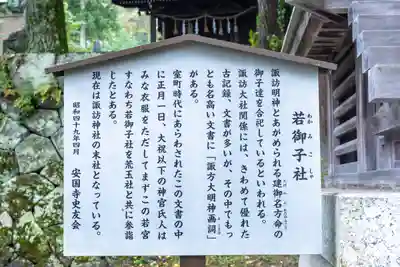 若御子社
わかみこしゃ
諏訪明神とあがめられる建御名方命の
たけみなかたのみこと
御子達を合祀しているといわれる。
諏訪大社関係には、きわめて優れた
古記録、文書が多いが、その中でもっ
とも名高い文書に「諏方大明神画詞」
がある。
室町時代にあらわされたこの文書の中
に正月一日、大祝以下の神官氏人は
みな衣服をただしてまずこの若宮
すなわち若御子社を荒玉社と共に参詣
したとある。
現在は諏訪神社の末社となっている。
昭和四十九年四月
安国寺史友会